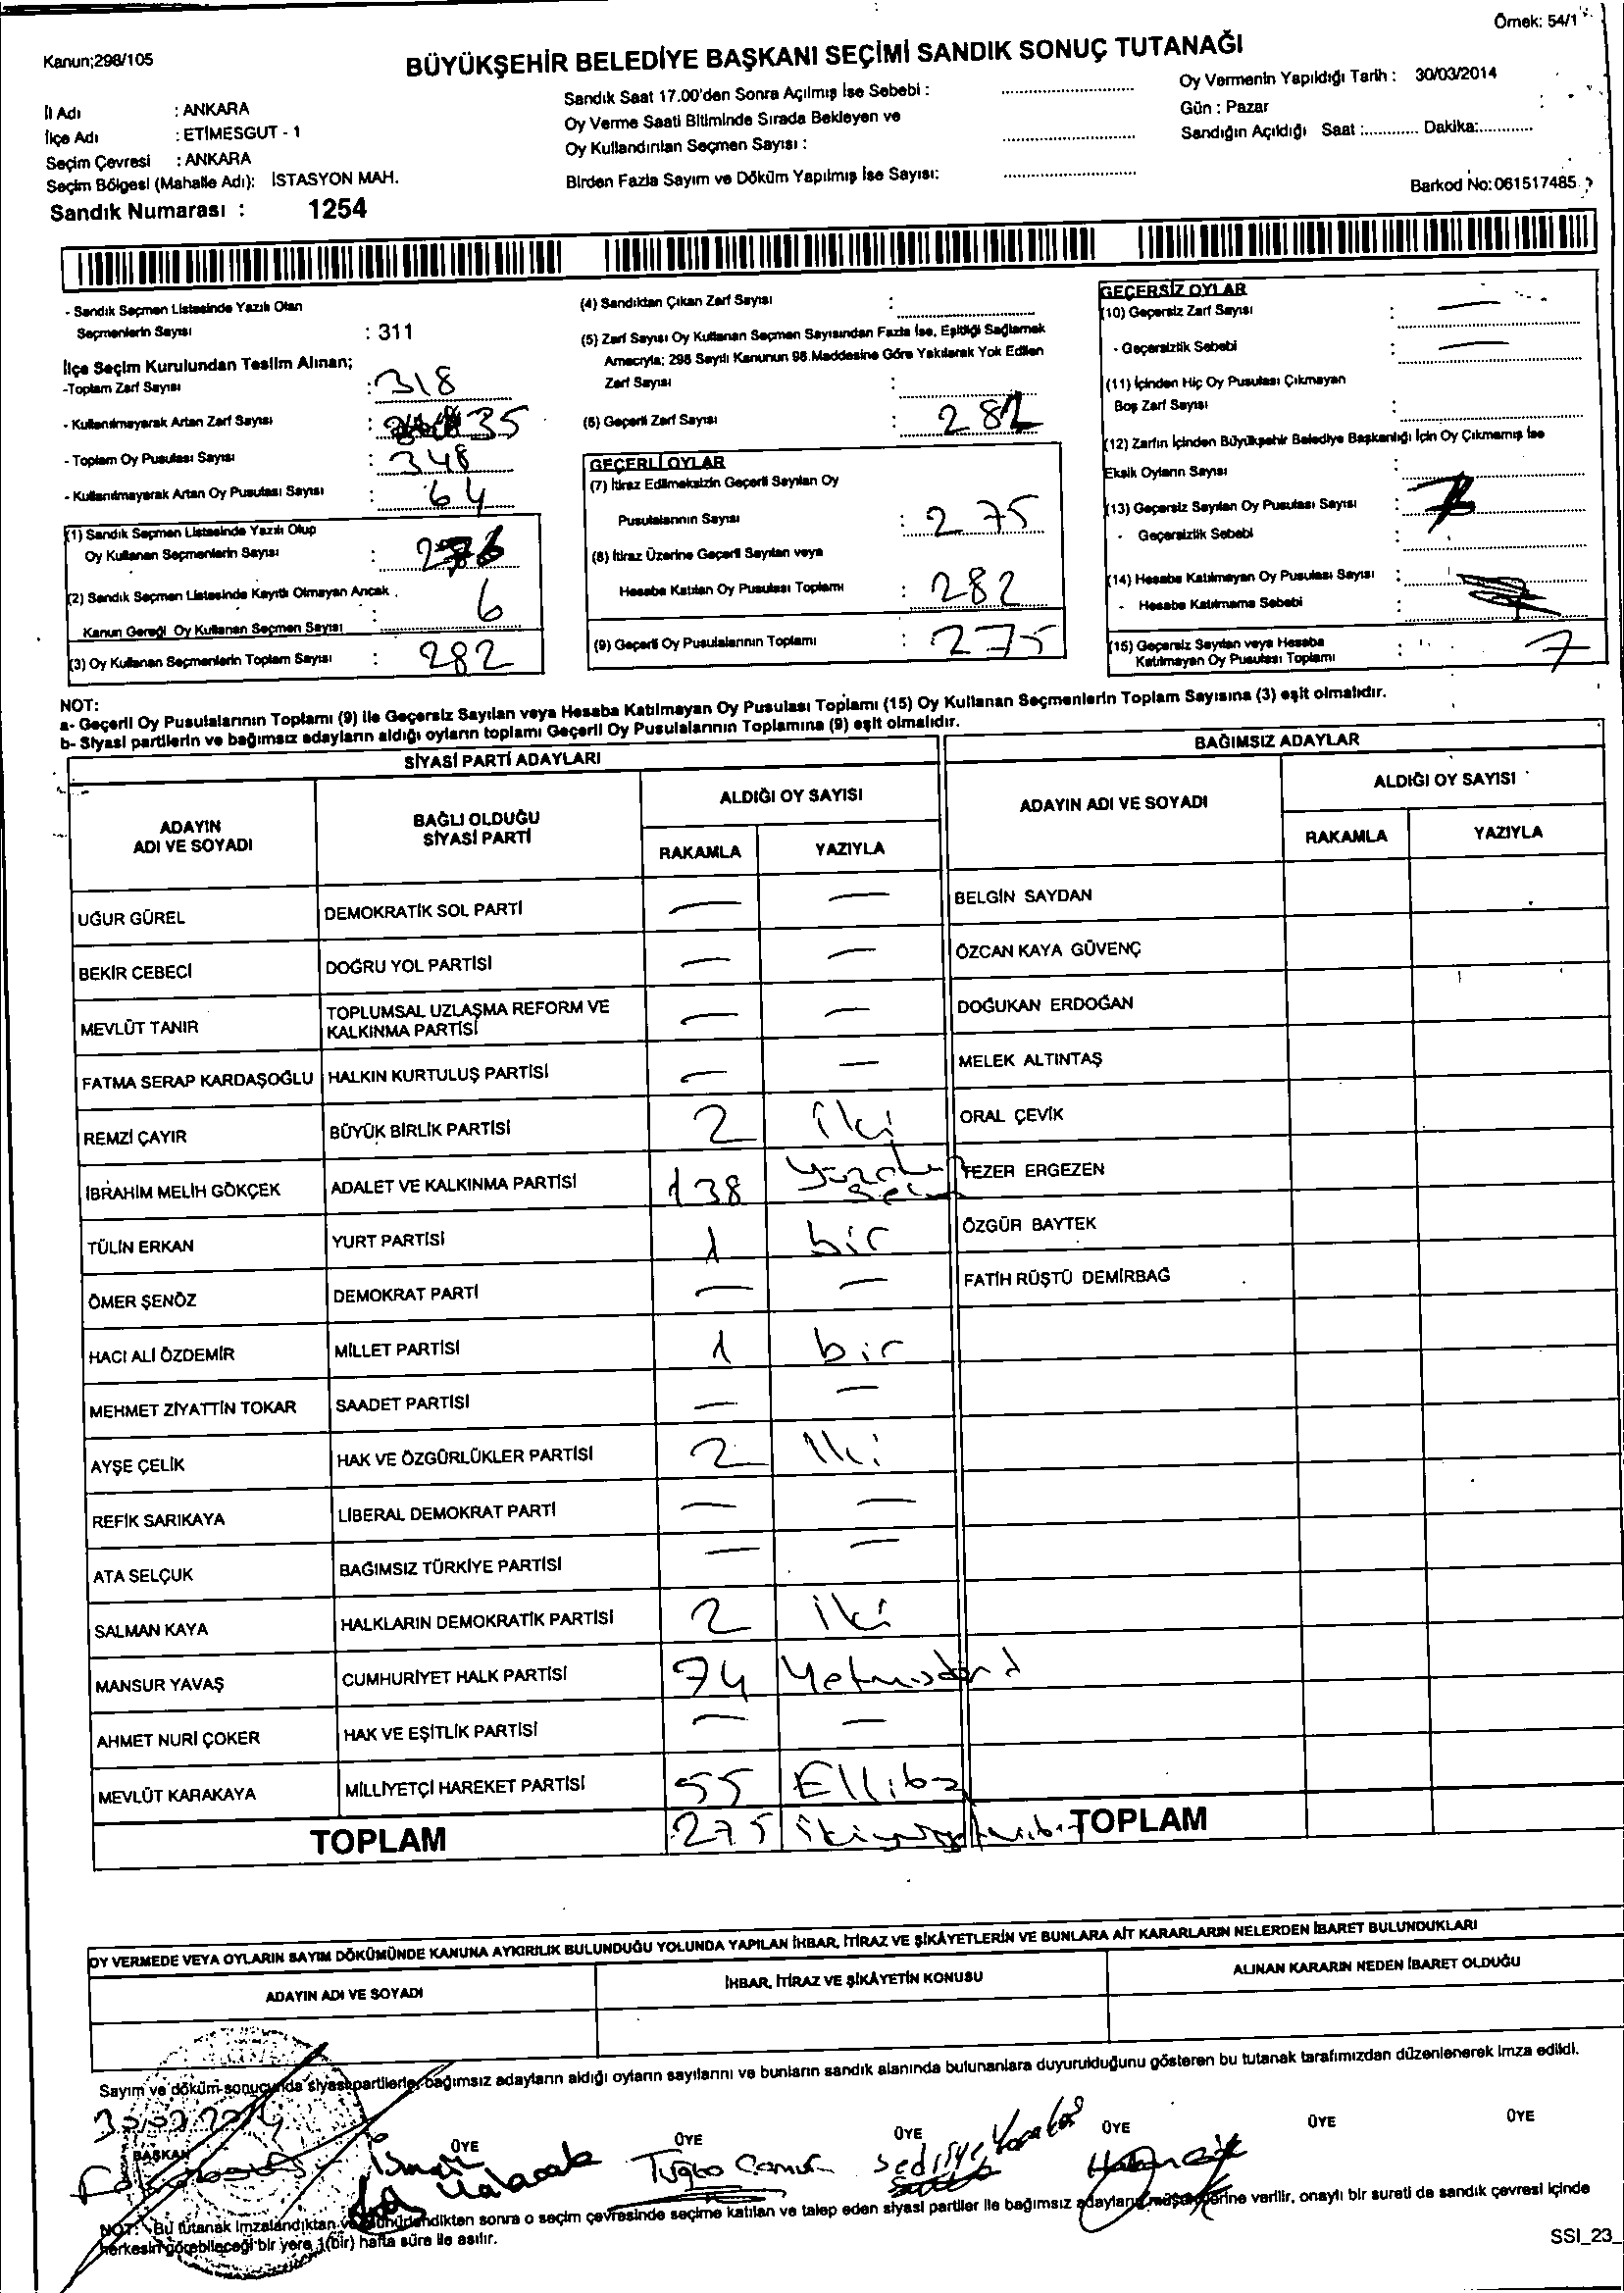 Örnek: 54/1
Kanun;298/105
BÜYÜKŞEHİR BELEDİYE BAŞKANI SEÇİMİ SANDIK SONUÇ TUTANAĞI
İl Adı : ANKARA
İlçe Adı : ETİMESGUT - 1
Seçim Çevresi : ANKARA
Seçim Bölgesi (Mahalle Adı): İSTASYON MAH.
Sandık Numarası : 1254
Sandık Saat 17.00'den Sonra Açılmış İse Sebebi :
Oy Verme Saati Bitiminde Sırada Bekleyen ve
Oy Kullandırılan Seçmen Sayısı :
Birden Fazla Sayım ve Döküm Yapılmış İse Sayısı:
Oy Vermenin Yapıldığı Tarih : 30/03/2014
Gün : Pazar
Sandığın Açıldığı Saat :............ Dakika:............
Barkod No: 061517485
- Sandık Seçmen Listesinde Yazılı Olan
Seçmenlerin Sayısı : 311
İlçe Seçim Kurulundan Teslim Alınan;
-Toplam Zarf Sayısı : 318
- Kullanılmayarak Artan Zarf Sayısı : 35
- Toplam Oy Pusulası Sayısı : 348
- Kullanılmayarak Artan Oy Pusulası Sayısı : 64
(1) Sandık Seçmen Listesinde Yazılı Olup
Oy Kullanan Seçmenlerin Sayısı : 276
(2) Sandık Seçmen Listesinde Kayıtlı Olmayan Ancak
Kanun Gereği Oy Kullanan Seçmen Sayısı : 6
(3) Oy Kullanan Seçmenlerin Toplam Sayısı : 282
(4) Sandıktan Çıkan Zarf Sayısı :
(5) Zarf Sayısı Oy Kullanan Seçmen Sayısından Fazla İse, Eşitliği Sağlamak
Amacıyla; 298 Sayılı Kanunun 98.Maddesine Göre Yakılarak Yok Edilen
Zarf Sayısı :
(6) Geçerli Zarf Sayısı : 282
GEÇERLİ OYLAR
(7) İtiraz Edilmeksizin Geçerli Sayılan Oy
Pusulalarının Sayısı : 275
(8) İtiraz Üzerine Geçerli Sayılan veya
Hesaba Katılan Oy Pusulası Toplamı : 282
(9) Geçerli Oy Pusulalarının Toplamı : 275
GEÇERSİZ OYLAR
(10) Geçersiz Zarf Sayısı : —
- Geçersizlik Sebebi : —
(11) İçinden Hiç Oy Pusulası Çıkmayan
Boş Zarf Sayısı :
(12) Zarfın İçinden Büyükşehir Belediye Başkanlığı İçin Oy Çıkmamış İse
Eksik Oyların Sayısı :
(13) Geçersiz Sayılan Oy Pusulası Sayısı :
- Geçersizlik Sebebi :
(14) Hesaba Katılmayan Oy Pusulası Sayısı :
- Hesaba Katılmama Sebebi :
(15) Geçersiz Sayılan veya Hesaba
Katılmayan Oy Pusulası Toplamı : 7
NOT:
a- Geçerli Oy Pusulalarının Toplamı (9) ile Geçersiz Sayılan veya Hesaba Katılmayan Oy Pusulası Toplamı (15) Oy Kullanan Seçmenlerin Toplam Sayısına (3) eşit olmalıdır.
b- Siyasi partilerin ve bağımsız adayların aldığı oyların toplamı Geçerli Oy Pusulalarının Toplamına (9) eşit olmalıdır.
SİYASİ PARTİ ADAYLARI
BAĞIMSIZ ADAYLAR
ADAYIN ADI VE SOYADI
BAĞLI OLDUĞU SİYASİ PARTİ
ALDIĞI OY SAYISI
RAKAMLA YAZIYLA
ADAYIN ADI VE SOYADI
ALDIĞI OY SAYISI
RAKAMLA YAZIYLA
UĞUR GÜREL DEMOKRATİK SOL PARTİ — — BELGİN SAYDAN
BEKİR CEBECİ DOĞRU YOL PARTİSİ — — ÖZCAN KAYA GÜVENÇ
MEVLÜT TANIR TOPLUMSAL UZLAŞMA REFORM VE KALKINMA PARTİSİ — — DOĞUKAN ERDOĞAN
FATMA SERAP KARDAŞOĞLU HALKIN KURTULUŞ PARTİSİ — — MELEK ALTINTAŞ
REMZİ ÇAYIR BÜYÜK BİRLİK PARTİSİ 2 iki ORAL ÇEVİK
İBRAHİM MELİH GÖKÇEK ADALET VE KALKINMA PARTİSİ 138 TEZER ERGEZEN
TÜLİN ERKAN YURT PARTİSİ 1 bir ÖZGÜR BAYTEK
ÖMER ŞENÖZ DEMOKRAT PARTİ — — FATİH RÜŞTÜ DEMİRBAĞ
HACI ALİ ÖZDEMİR MİLLET PARTİSİ 1 bir
MEHMET ZİYATTİN TOKAR SAADET PARTİSİ — —
AYŞE ÇELİK HAK VE ÖZGÜRLÜKLER PARTİSİ 2 İki
REFİK SARIKAYA LİBERAL DEMOKRAT PARTİ — —
ATA SELÇUK BAĞIMSIZ TÜRKİYE PARTİSİ — —
SALMAN KAYA HALKLARIN DEMOKRATİK PARTİSİ 2 iki
MANSUR YAVAŞ CUMHURİYET HALK PARTİSİ 74 Yetmişdört
AHMET NURİ ÇOKER HAK VE EŞİTLİK PARTİSİ — —
MEVLÜT KARAKAYA MİLLİYETÇİ HAREKET PARTİSİ 55 Elli
TOPLAM 275 TOPLAM
OY VERMEDE VEYA OYLARIN SAYIM DÖKÜMÜNDE KANUNA AYKIRILIK BULUNDUĞU YOLUNDA YAPILAN İHBAR, İTİRAZ VE ŞİKÂYETLERİN VE BUNLARA AİT KARARLARIN NELERDEN İBARET BULUNDUKLARI
ADAYIN ADI VE SOYADI İHBAR, İTİRAZ VE ŞİKÂYETİN KONUSU ALINAN KARARIN NEDEN İBARET OLDUĞU
Sayım ve döküm sonucunda siyasi partilerle, bağımsız adayların aldığı oyların sayılarını ve bunların sandık alanında bulunanlara duyurulduğunu gösteren bu tutanak tarafımızdan düzenlenerek imza edildi.
BAŞKAN ÜYE ÜYE ÜYE ÜYE ÜYE ÜYE
Tuğba
NOT: Bu tutanak imzalandıktan ve mühürlendikten sonra o seçim çevresinde seçime katılan ve talep eden siyasi partiler ile bağımsız adayların müşahitlerine verilir, onaylı bir sureti de sandık çevresi içinde
herkesin görebileceği bir yere 1(bir) hafta süre ile asılır.
SSI_23_